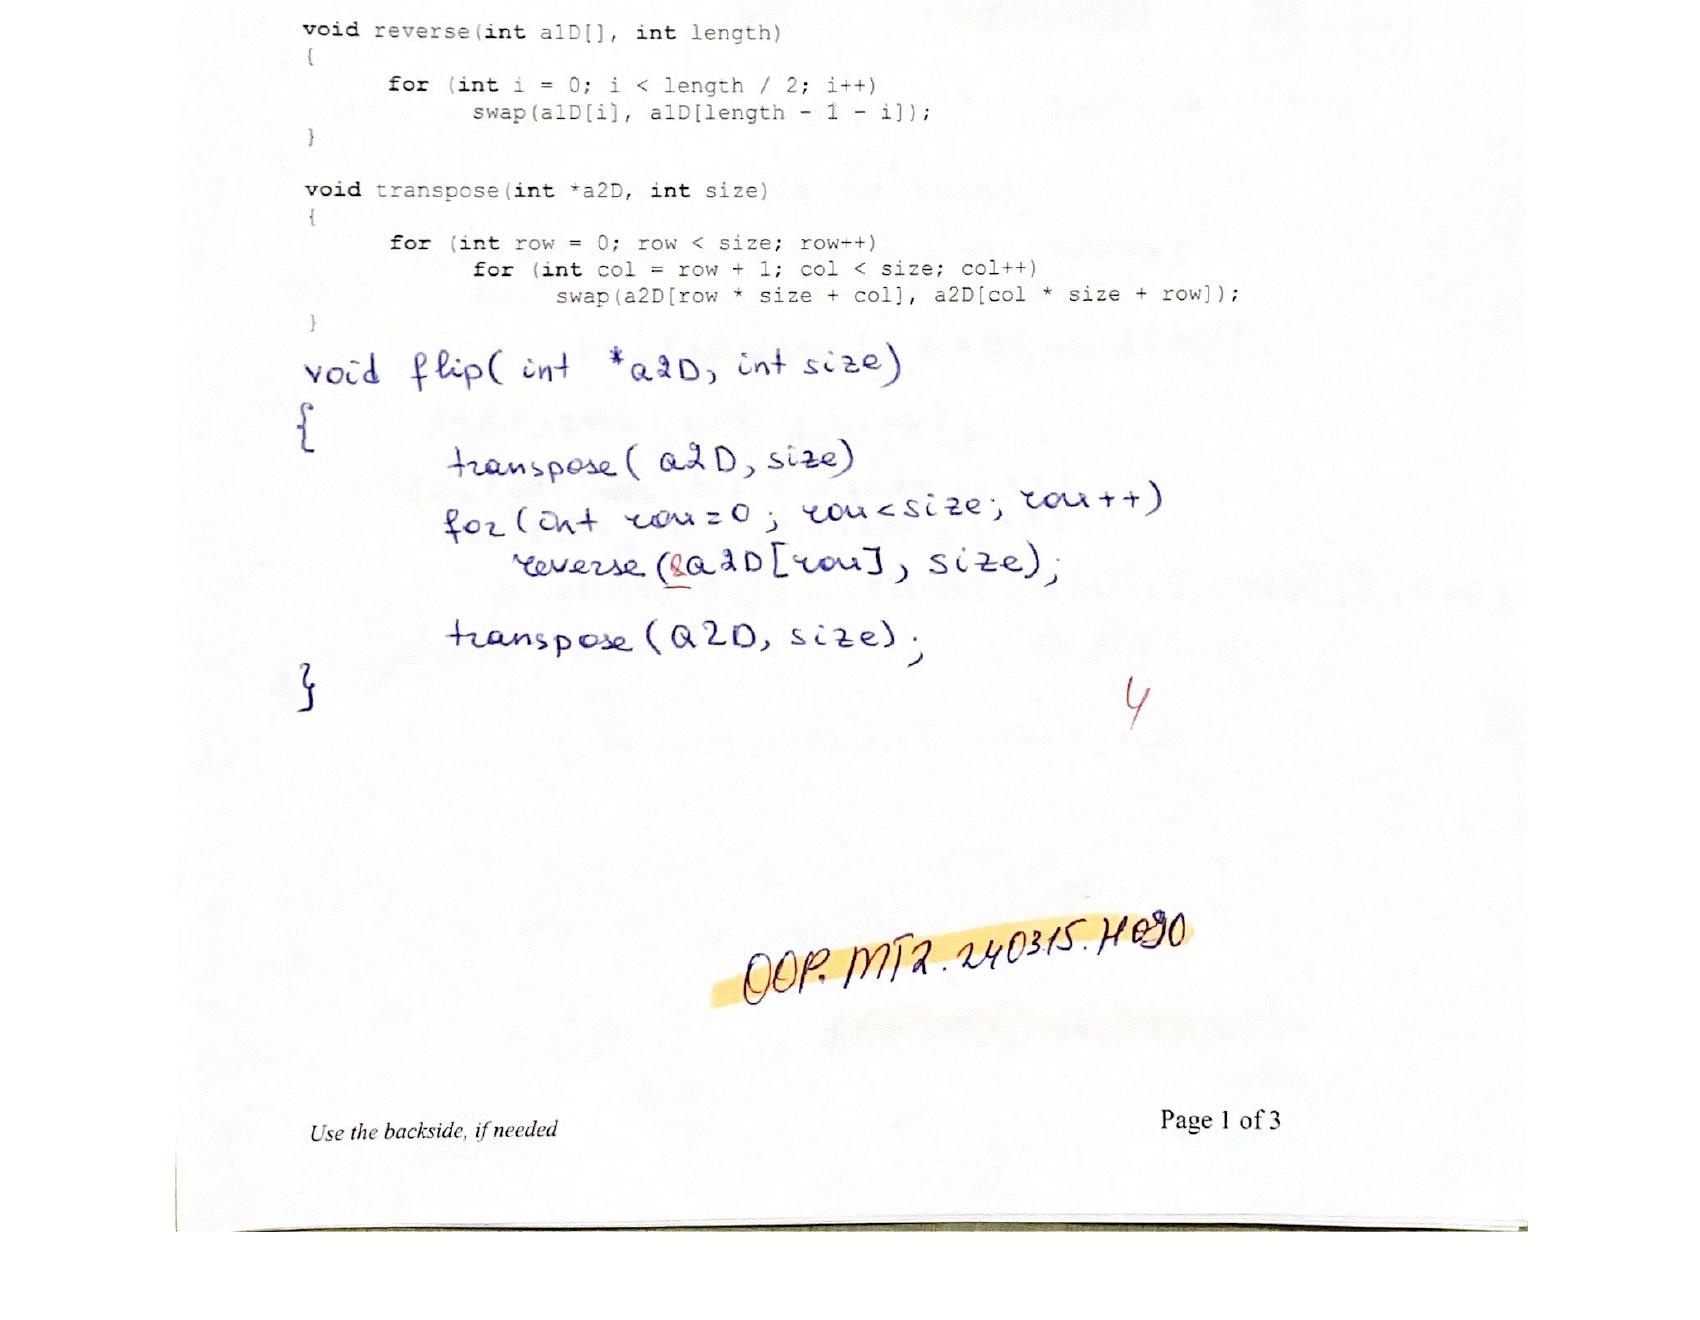 void reverse(int a1D[], int length)
{
for (int i = 0; i < length / 2; i++)
swap(a1D[i], a1D[length - 1 - i]);
}
void transpose(int *a2D, int size)
{
for (int row = 0; row < size; row++)
for (int col = row + 1; col < size; col++)
swap(a2D[row * size + col], a2D[col * size + row]);
}
void flip( int *a2D, int size)
{
transpose( a2D, size)
for (int row=0; row<size; row++)
reverse (&a2D[row], size);
transpose (a2D, size);
}
4
OOP. MT2. 240315. H090
Use the backside, if needed
Page 1 of 3